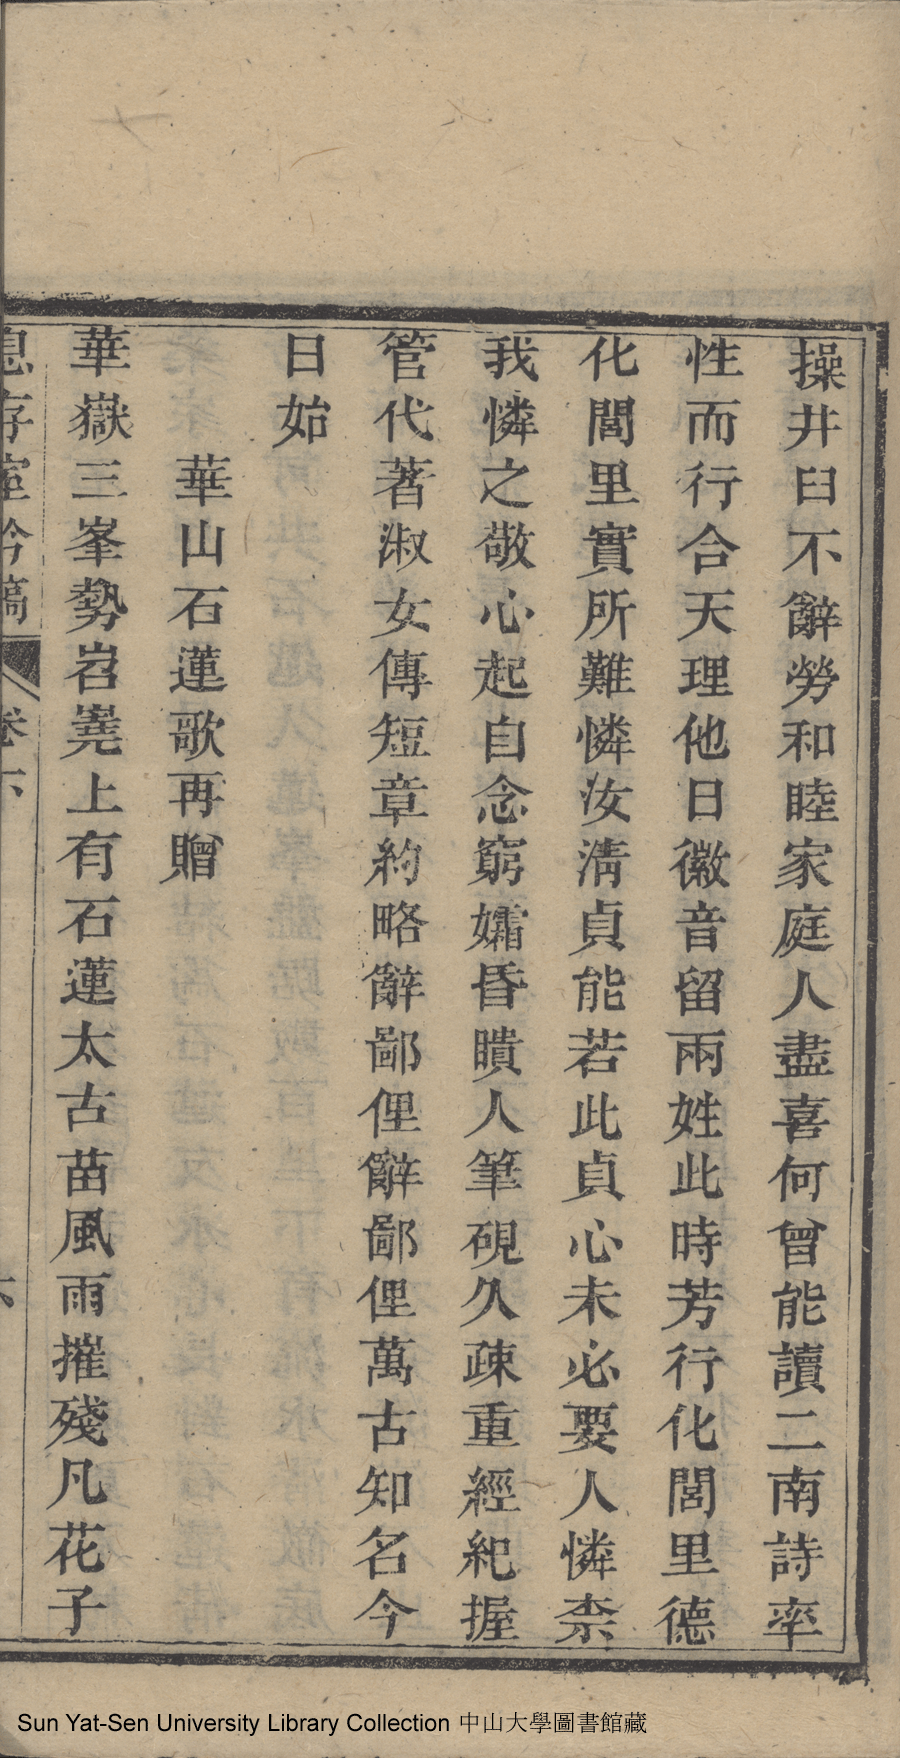 操井臼不辭勞和睦家庭人盡喜何曾能讀二南詩率
性而行合天理他日徽音留兩姓此時芳行化閭里德
化閭里實所難憐汝淸貞能若此貞心未必要人憐柰
我憐之敬心起自念窮孀昏瞶人筆硯久疎重經紀握
管代著淑女傳短章約略辭鄙俚辭鄙俚萬古知名今
日始
華山石蓮歌再贈
華嶽三峯勢岧嶤上有石蓮太古苗風雨摧殘凡花子
息存室吟稿 卷下 六
Sun Yat-Sen University Library Collection 中山大學圖書館藏